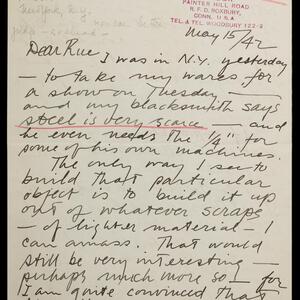 PAINTER HILL ROAD
R. F. D. ROXBURY
CONN. U.S.A
TEL. & TEL. WOODBURY 122-2
May 15/42
Dear Rue
I was in N.Y. yesterday
— to take my wares for
a show on Tuesday —
and my blacksmith says
steel is very scarce — and
he even needs the 1/4" for
some of his own machines.
The only way I see to
build that particular
object is to build it up
out of whatever scraps
— of lighter material — I
can amass. That would
still be very interesting —
perhaps much more so — for
I am quite convinced that